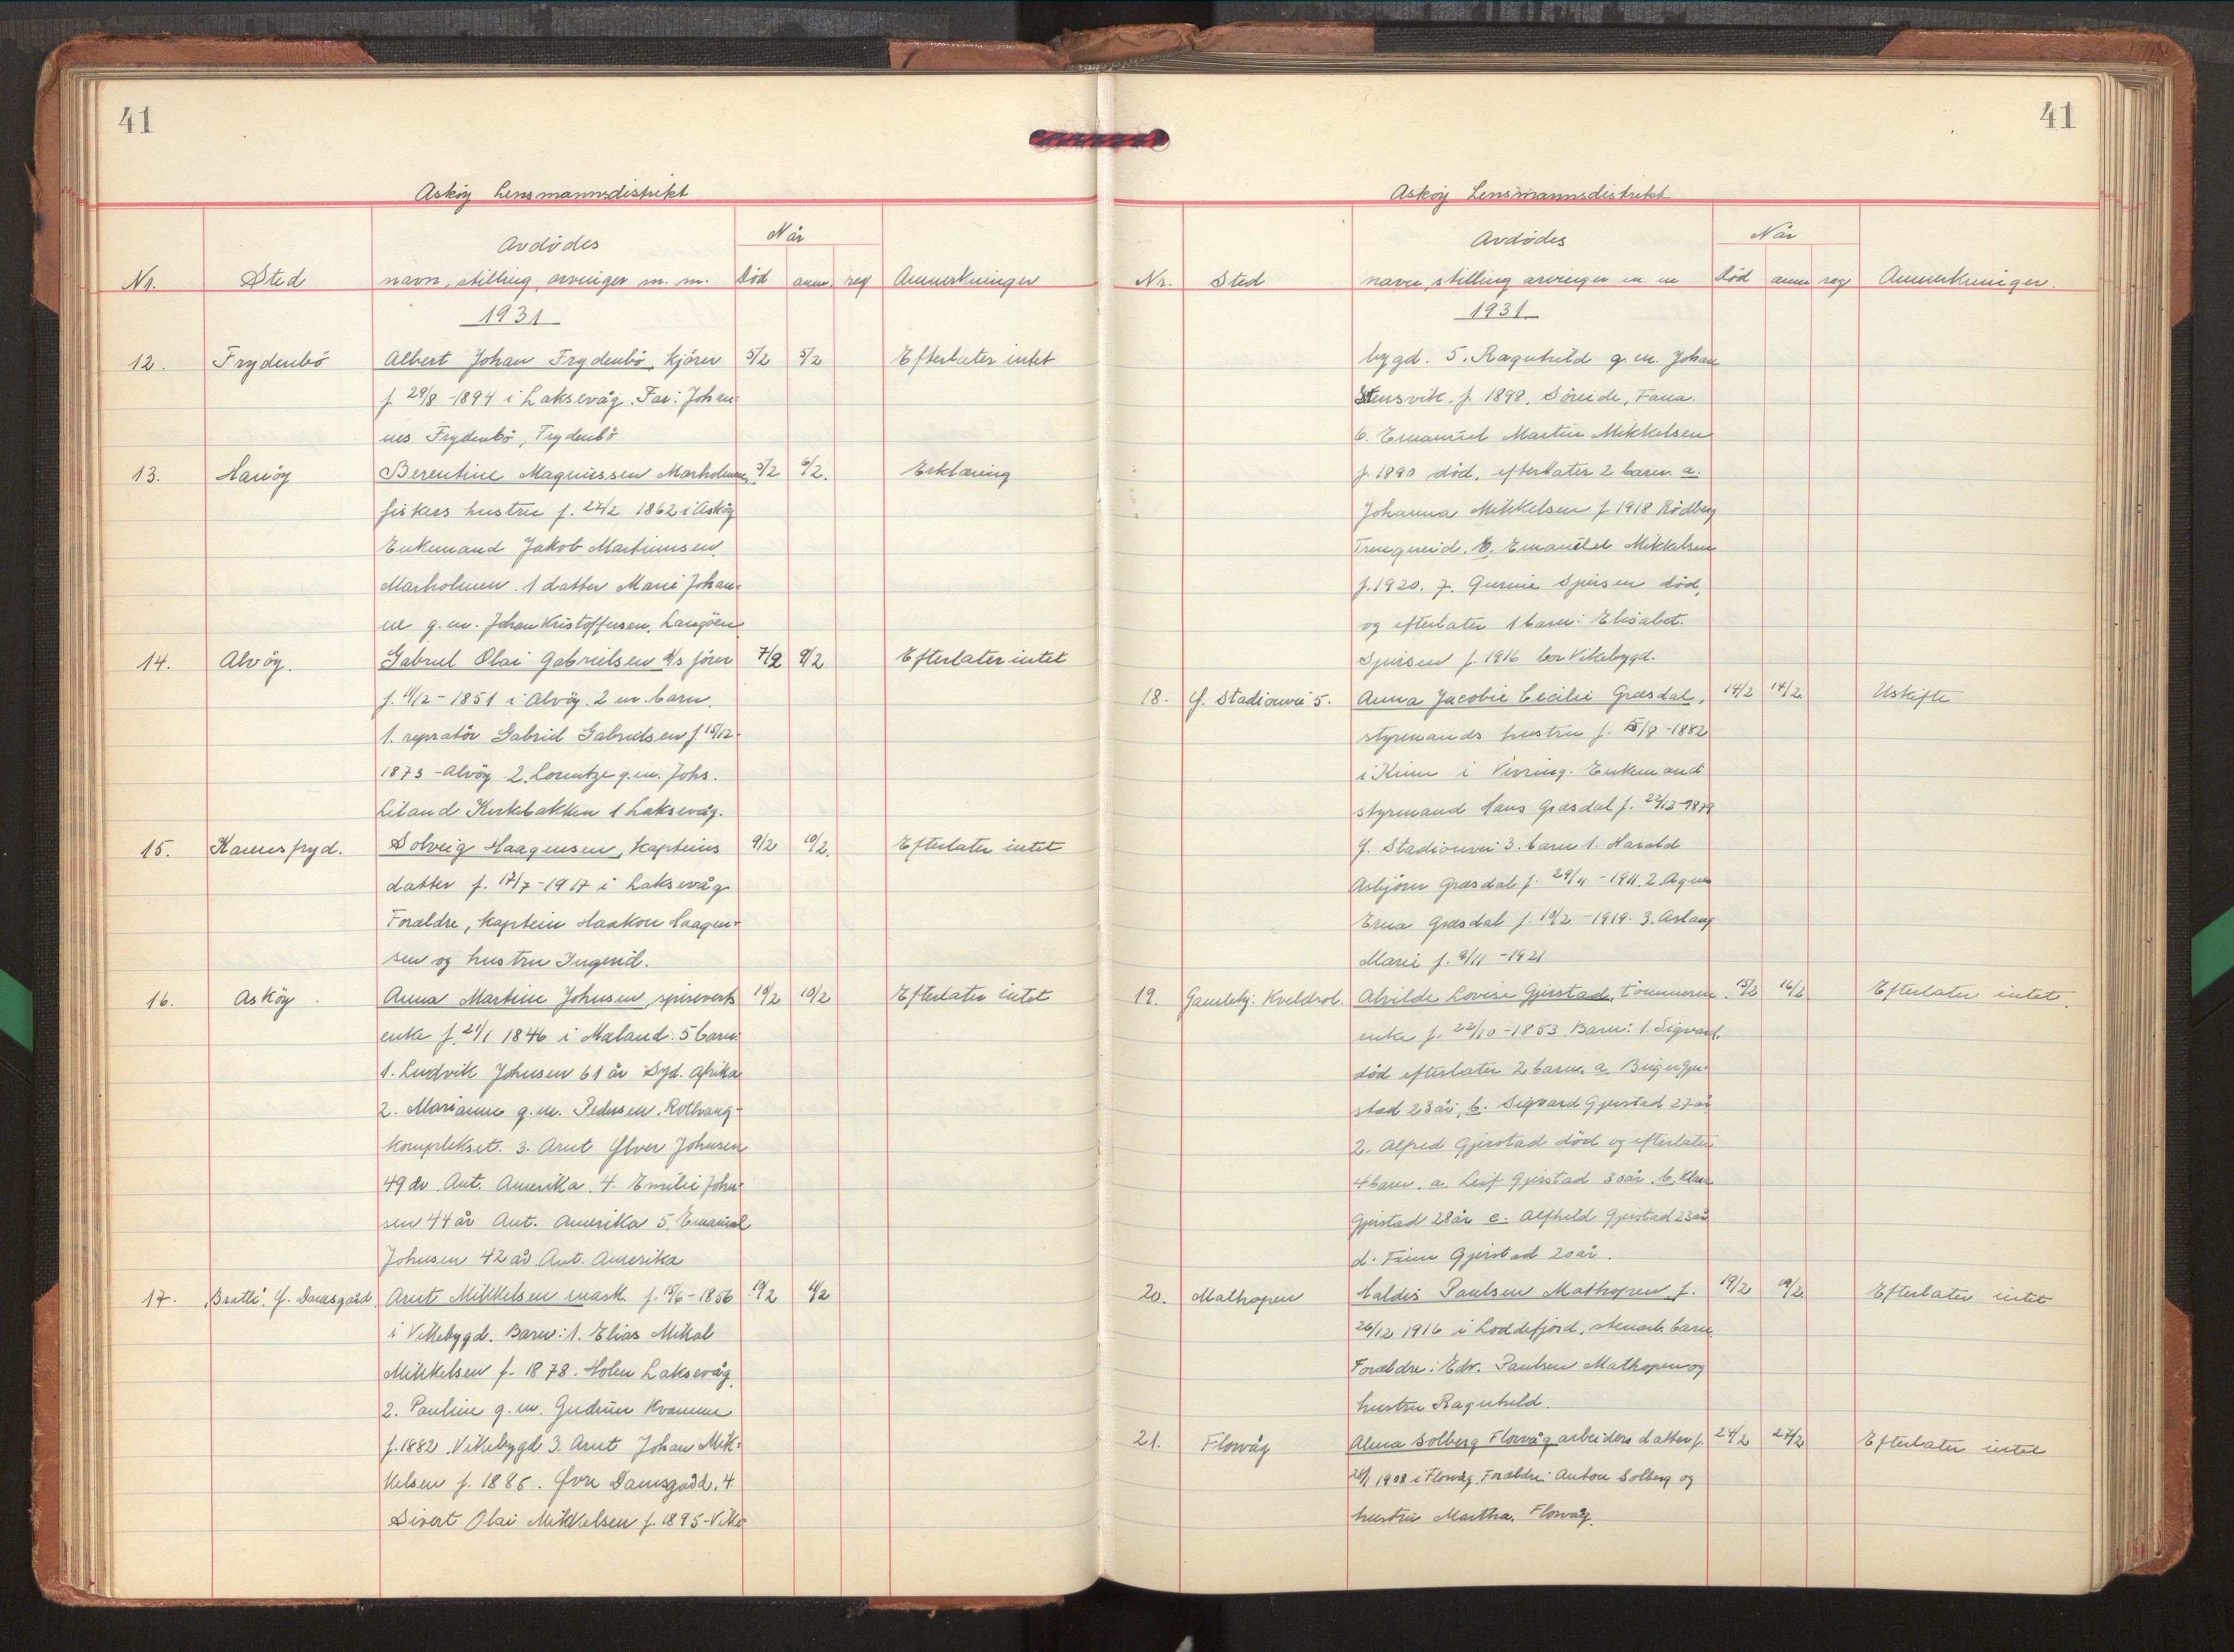 41
Askøy Lensmannsdistrikt
Avdødes
Når
Nr. Sted navn, stilling, arvinger m. m. død anm. reg Anmerkninger
1931
12. Frydenbö Albert Johan Frydenbö, kjörer 5/2 5/2 Efterlater intet
f 29/8 -1894 i Laksevåg. Far: Johan-
nes Frydenbö, Frydenbö
13. Hanöy Berentine Magnussen Marholmen 3/2 6/2. Erklæring
fiskers hustru f. 27/2 1862 i Asköy
Enkemand Jakob Martinussen
Marholmen. 1 datter Marie Johan-
ne g.m. Johan Kristoffersen, Langöen
14. Alvöy. Gabriel Olai Gabrielsen 7/2 9/2 Efterlater intet
f. 11/12 - 1851 i Alvöy. 2 m. barn.
1. repratör Gabriel Gabrielsen f 15/12-
1873 - Alvöy 2. Lorentze g.m. Johs.
Liland Kirkebakken 1 Laksevåg.
15. Karensfryd. Solveig Haagensen, kapteins 9/2 10/2. Efterlater intet
datter f. 17/7 - 1917 i Laksevåg
Forældre, kaptein Haakon Haagen-
sen og hustru Ingerid.
16. Asköy. Anna Martine Johnsen, spiseverts 10/2 10/2 Efterlater intet
enke f. 21/1 1846 i Maland. 5 barn:
1. Ludvik Johnsen 61 år Syd. Afrika
2. Marianne g.m. Pedersen, Rothaug-
komplekset. 3. Arnt Johnsen
49 år Ant. Amerika. 4. Emilie John-
sen 44 år Ant. Amerika 5. Emanuel
Johnsen 42 år Ant. Amerika
17. "Bratli" Y. Damsgård Arnt Mikkelsen mask. f. 15/6 - 1856 10/2 11/2
i Vikebygd. Barn: 1. Elias Mikal
Mikkelsen f. 1878. Holen Laksevåg.
2. Pauline g.m. Gudmun Kvamme
f. 1882. Vikebygd 3. Arnt Johan Mik-
kelsen f. 1886. Øvre Damsgård. 4
Sivert Olai Mikkelsen f. 1895 - Vike
41
Askøy Lensmannsdistrikt
Avdødes
Når
Nr. Sted navn, stilling arvinger m. m død anm reg Anmerkninger.
1931
bygd. 5. Ragnhild g.m. Johan
Stensvik. f. 1898. Söreide, Fana.
6. Emanuel Martin Mikkelsen
f 1890 död, efterlater 2 barn. a.
Johanna Mikkelsen f 1918 Rödberg
b. Emanuel Mikkelsen
f. 1920. 7. Gurine död,
og efterlater 1 barn: Elisabet.
f. 1916 bor Vikebygd.
18. Y. Stadionvei 5. Anna Jacobie Cecilie Græsdal, 14/2 14/2 Uskifte
styrmands hustru f. 15/8 - 1882
i Kinn i Enkemand
styrmand Hans Græsdal f. 22/12 - 1879
Y. Stadionvei 3. barn 1. Harald
Asbjörn Græsdal f. 29/11 - 1911. 2 Agnes
Erna Græsdal f. 10/2 - 1919. 3. Aslaug
Marie f. 9/11 - 1921
19. Gamlehj. Kveldsol. Alvilde Lovise Gjerstad, tömmerm. 15/2 16/2 Efterlater intet.
enke f. 22/10 - 1853. Barn: 1. Sigvard,
död efterlater 2 barn. a. Birger Gjer-
stad 23 år, b. Sigvard Gjerstad 27 år
2. Alfred Gjerstad död og efterlater
4 barn. a. Leif Gjerstad 30 år. b. Klara
Gjerstad 28 år c. Alfhild Gjerstad 23 år
d. Finn Gjerstad 20 år.
20. Mathopen Haldis Paulsen Mathopen f. 19/2 19/2 Efterlater intet
26/12 1916 i Loddefjord, stenarb. barn.
Forældre: Edv. Paulsen Mathopen og
hustru Ragnhild.
21. Florvåg Alma Solberg Florvåg arbeiders datter f. 24/2 27/2 Efterlater intet
28/1 1908 i Florvåg. Forældre: Anton Solberg og
hustru Martha, Florvåg.